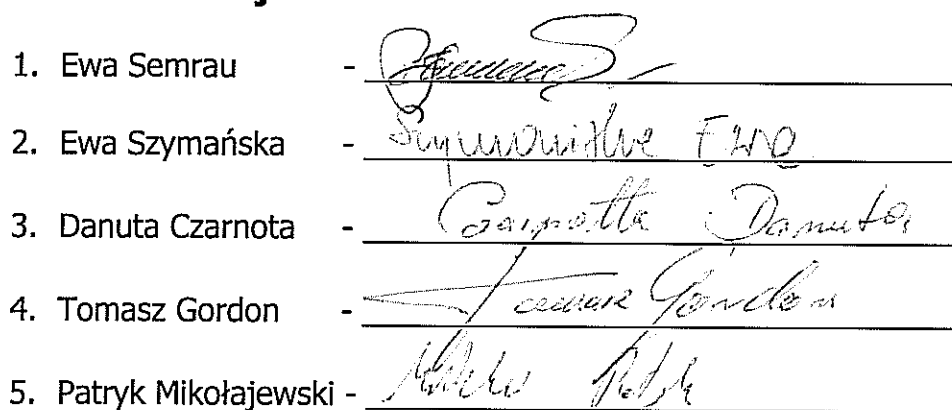 1. Ewa Semrau -
2. Ewa Szymańska - Szymańska Ewa
3. Danuta Czarnota - Czarnota Danuta
4. Tomasz Gordon - Tomasz Gordon
5. Patryk Mikołajewski -